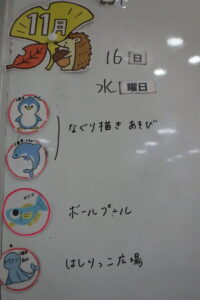 11月
16日
水曜日
なぐり描き あそび
ボールプール
はしりっこ広場